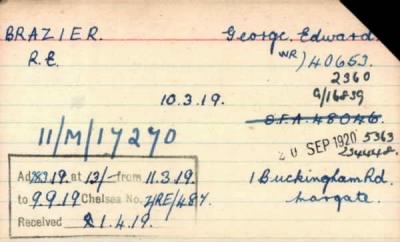 BRAZIER. George. Edward
R.E. WR/40653.
2360
G/16839
10.3.19.
O.F.A. 48046
11/M/17270
20 SEP 1920 5363
234448.
Ad 19. at 13/- from 11.3.19. 1 Buckingham Rd.
to 9.9.19 Chelsea No. 2/RE/487. Margate.
Received 1.4.19.